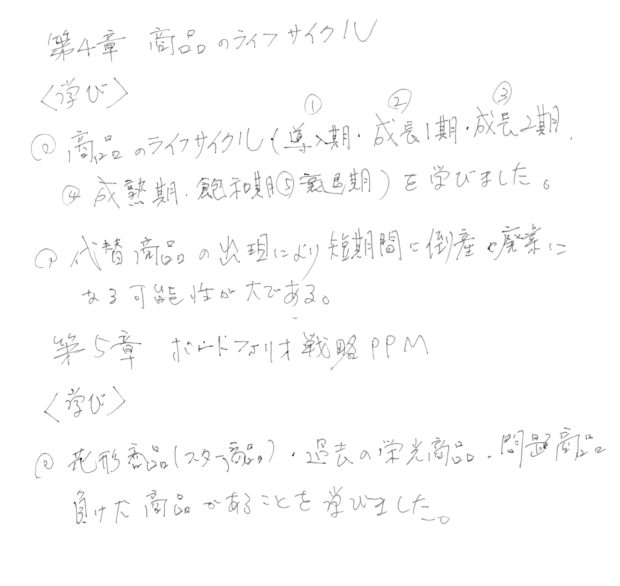 第4章 商品のライフサイクル
〈学び〉
① ② ③
◎ 商品のライフサイクル・(導入期・成長1期・成長2期.
④ 成熟期・飽和期⑤衰退期)を学びました。
◎ 代替商品の出現により短期間に倒産や廃業に
なる可能性が大である。
第5章 ポートフォリオ戦略PPM
〈学び〉
◎ 花形商品(スター商品)・過去の栄光商品・問題商品
負け犬商品があることを学びました。